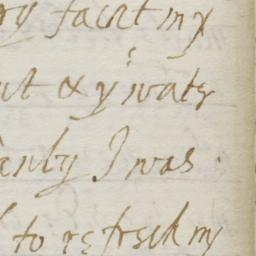 facit my
ut & yͤ watr
enly I was
to refresh my